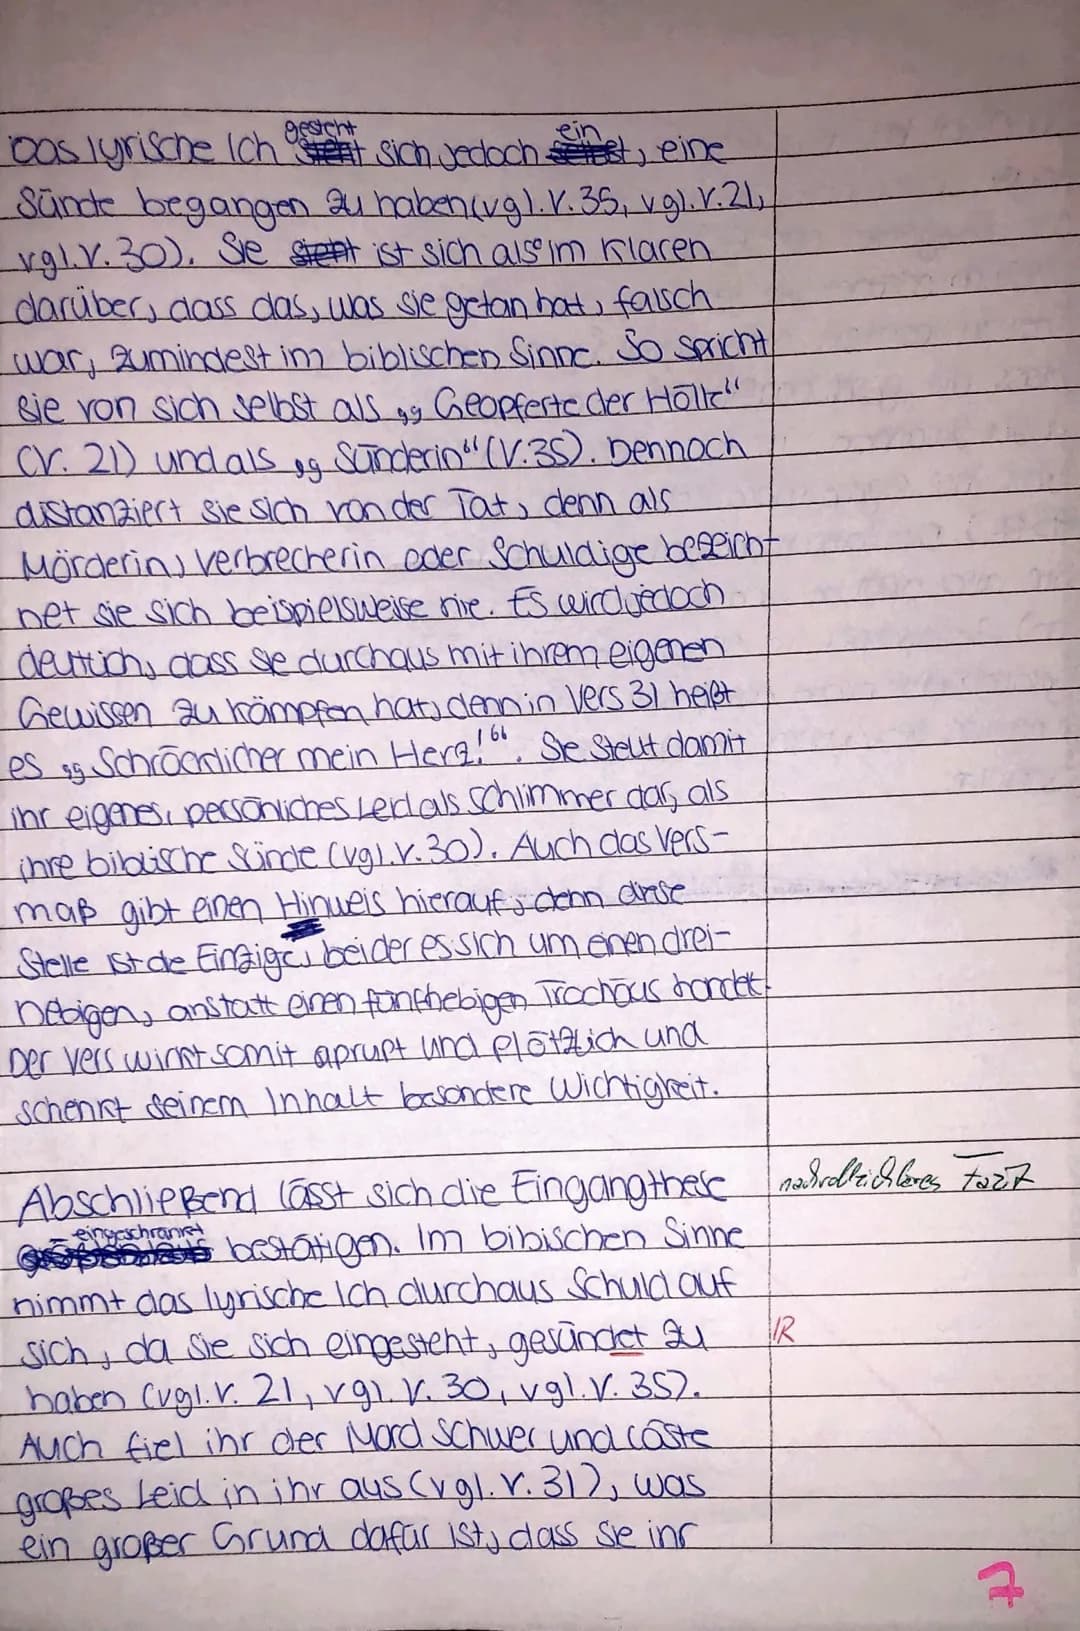 Das lyrische Ich gesteht sich jedoch ein, eine
Sünde begangen zu haben (vgl. V. 35, vgl. V. 21,
vgl. V. 30). Sie ist sich also im Klaren
darüber, dass das, was sie getan hat, falsch
war, zumindest im biblischen Sinne. So spricht
sie von sich selbst als „Geopferte der Hölle“
(V. 21) und als „Sünderin“ (V. 35). Dennoch
distanziert sie sich von der Tat, denn als
Mörderin, Verbrecherin oder Schuldige bezeich-
net sie sich beispielsweise nie. Es wird jedoch
deutlich, dass sie durchaus mit ihrem eigenen
Gewissen zu kämpfen hat, denn in Vers 31 heißt
es „Schröcklicher mein Herz!“. Sie stellt damit
ihr eigenes, persönliches Leid als schlimmer dar, als
ihre biblische Sünde (vgl. V. 30). Auch das Vers-
maß gibt einen Hinweis hierauf, denn diese
Stelle ist die Einzige, bei der es sich um einen drei-
hebigen, anstatt einen fünfhebigen Trochäus handelt.
Der Vers wirkt somit aprupt und plötzlich und
schenkt seinem Inhalt besondere Wichtigkeit.
Abschließend lässt sich die Eingangthese
nachvollziehbares Fazit
eingeschränkt bestätigen. Im bibischen Sinne
nimmt das lyrische Ich durchaus Schuld auf
sich, da sie sich eingesteht, gesündet zu
IR
haben (vgl. V. 21, vgl. V. 30, vgl. V. 35).
Auch fiel ihr der Mord schwer und löste
großes Leid in ihr aus (vgl. V. 31), was
ein großer Grund dafür ist, dass sie ihr
7